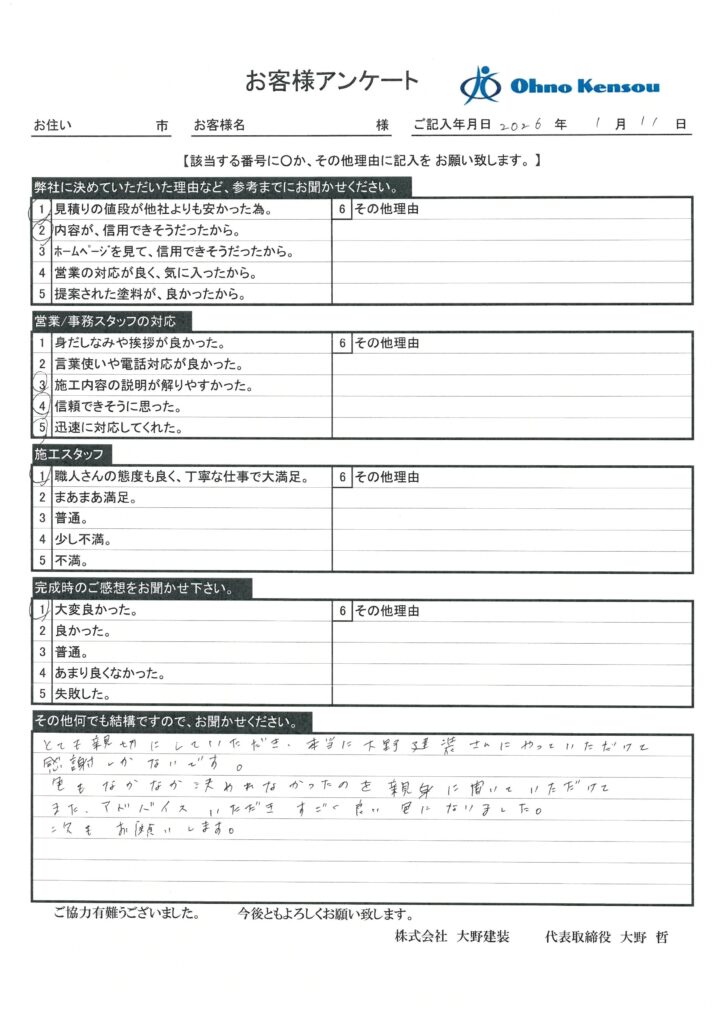 お客様アンケート
Ohno Kensou
お住い 市 お客様名 様 ご記入年月日 2026 年 1 月 11 日
【該当する番号に〇か、その他理由に記入を お願い致します。】
弊社に決めていただいた理由など、参考までにお聞かせください。
1 見積りの値段が他社よりも安かった為。 6 その他理由
2 内容が、信用できそうだったから。
3 ホームページを見て、信用できそうだったから。
4 営業の対応が良く、気に入ったから。
5 提案された塗料が、良かったから。
営業/事務スタッフの対応
1 身だしなみや挨拶が良かった。 6 その他理由
2 言葉使いや電話対応が良かった。
3 施工内容の説明が解りやすかった。
4 信頼できそうに思った。
5 迅速に対応してくれた。
施工スタッフ
1 職人さんの態度も良く、丁寧な仕事で大満足。 6 その他理由
2 まあまあ満足。
3 普通。
4 少し不満。
5 不満。
完成時のご感想をお聞かせ下さい。
1 大変良かった。 6 その他理由
2 良かった。
3 普通。
4 あまり良くなかった。
5 失敗した。
その他何でも結構ですので、お聞かせください。
とても親切にしていただき、本当に大野建装さんにやっていただけて
感謝しかないです。
色もなかなか決めれなかったのを親身に聞いていただけて
また、アドバイスいただきすごく良い色になりました。
次もお願いします。
ご協力有難うございました。 今後ともよろしくお願い致します。
株式会社 大野建装 代表取締役 大野 哲